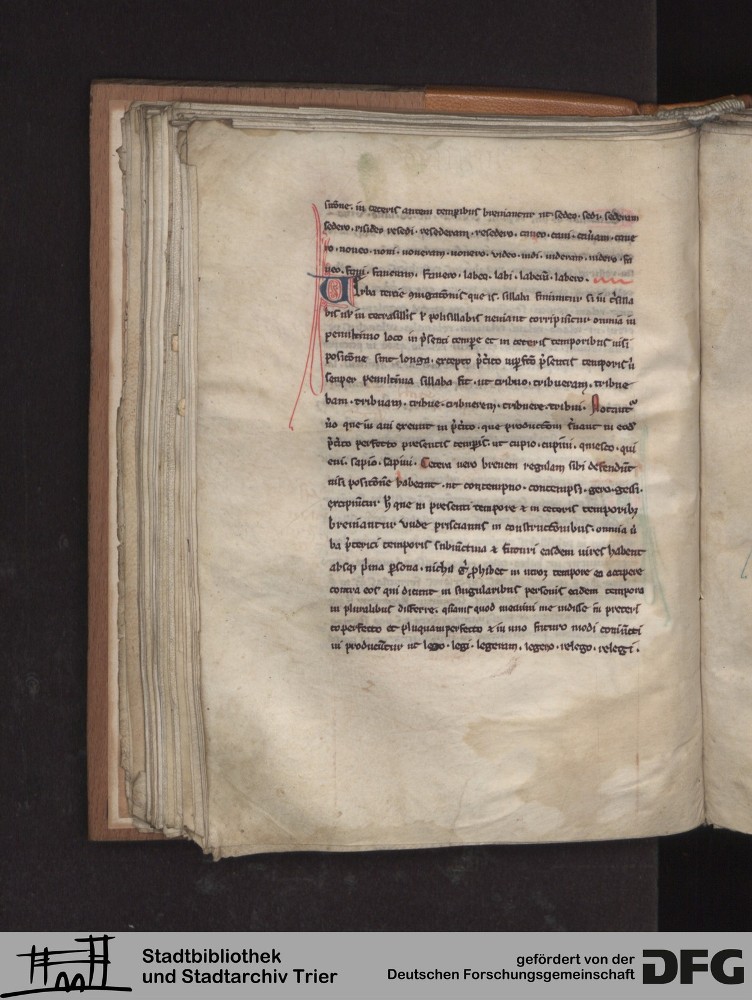 sitõne. in ceteris autem temporibus breuiantur ut sedeo. sedi. sederam
sedero. resideo resedi. resederam. resedero. caueo. caui. caueram. caue
ro. uoueo. uoui. uoueram. uouero. video. uidi. uideram. uidero. fa
ueo. faui. faueram. fauero. labeo. labi. labeam. labero.
Verba tercie iugatõnis que sillaba in
bis in tetrasillis polisillabis ueniant corripiũtur omnia in
penultimo loco in p̃senti tempore et in ceteris temporibus nisi
positõne sint longa. excepto p̃terito p̃sentis temporis
semper penultima sillaba sit. ut tribuo. tribueram. tribue
bam. tribuam. tribue. tribuerem. tribuere. tribui. Notant
ũo que in aui exeunt in p̃terito. que productiõm in eod
p̃terito perfecto presentis temporis. ut cupio. cupiui. quiesco. qui
eui. sapio. sapiui. Cetera uero breuem regulam sibi defendũt
nisi positõne habeant. ut contempno. contempsi. gero. gessi.
excipiũtur que in presenti tempore & in ceteris temporibꝫ
breuiantur Vnde priscianus in constructõnibus. omnia ũ
ba p̃teriti temporis subiũctiua & futuri easdem uires habent
absqꝫ p̃ma ꝑsona. nichil ꝓhibet in utroqꝫ tempore ea accipere
contra eos qui dicunt in singularibus personis eadem tempora
in pluralibus differre. quod me in preteri
to perfecto et pluquamperfecto & in uno futuro modi coniũcti
ui producũtur ut lego. legi. legeram. legero. relego. relegi.
Stadtbibliothek
und Stadtarchiv Trier
gefördert von der
Deutschen Forschungsgemeinschaft
DFG